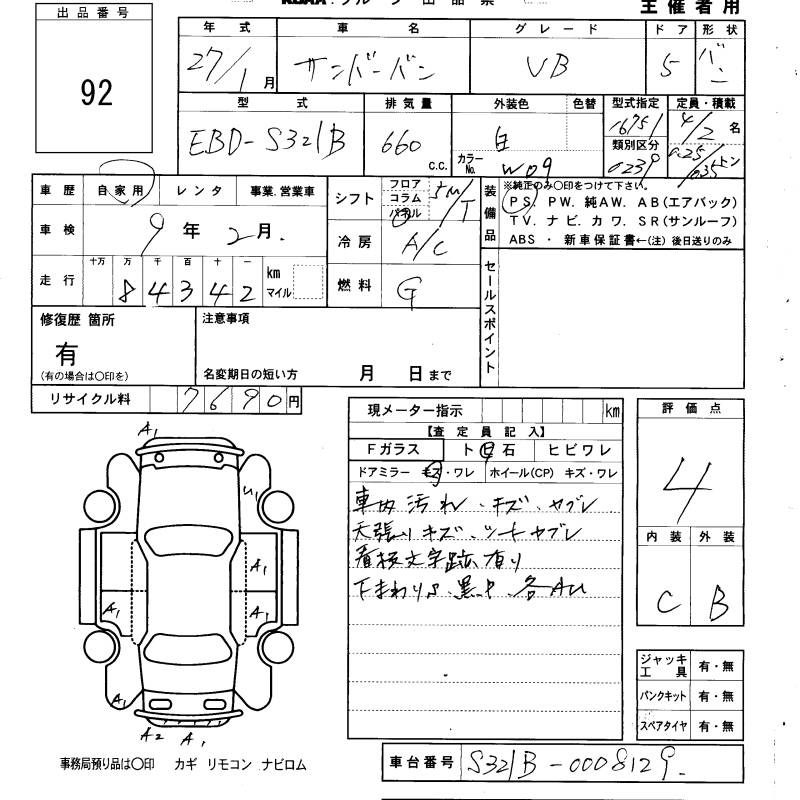 主催者用
出品番号
92
年式 車名 グレード ドア 形状
27/1月 サンバーバン VB 5 バン
型式 排気量 外装色 色替 型式指定 定員・積載
EBD-S321B 660 c.c. 白 カラーNo. W09 16751 4/2名
類別区分
0239 0.25/0.35トン
車歴 自家用 レンタ 事業.営業車
シフト フロア コラム パネル 5M/T
装備品 ※純正のみ〇印をつけて下さい。
PS. PW. 純AW. AB(エアバック)
TV. ナビ. カワ. SR(サンルーフ)
ABS ・ 新車保証書←(注) 後日送りのみ
車検 9年2月.
冷房 A/C
走行 十万 万 千 百 十 一
84342 km マイル
燃料 G
セールスポイント
修復歴 箇所
有
(有の場合は〇印を)
注意事項
名変期日の短い方 月 日まで
リサイクル料 7690円
現メーター指示 km
【査定員記入】
Fガラス ト 石 ヒビワレ
ドアミラー キズ・ワレ ホイール(CP) キズ・ワレ
車内汚れ.キズ.ヤブレ
天張りキズ.シートヤブレ
看板文字跡有り
下まわりS.黒中.各AU
評価点
4
内装 外装
C B
A1
U1
A1
A1 A1
A1
A2 A1
ジャッキ工具 有・無
パンクキット 有・無
スペアタイヤ 有・無
事務局預り品は〇印 カギ リモコン ナビロム
車台番号 S321B-0008129